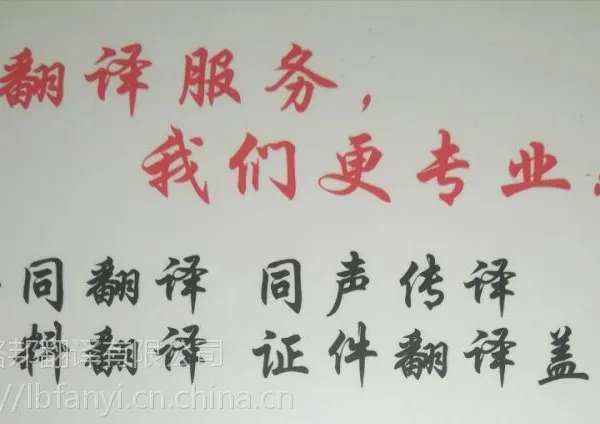 翻译服务，
我们更专业
同翻译 同声传译
料翻译 证件翻译 盖
翻译有限公司
//lbfanyi.cn.china.cn